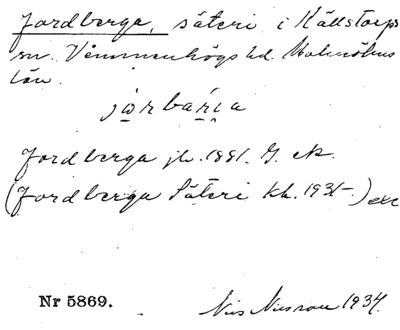 Jordberga, säteri i Källstorps
sn. Vemmenhögs hd. Malmöhus
län.
Jordberga jb. 1881. G. ek.
(Jordberga Säteri kk. 1931-)
Nr 5869.
Nils Nilsson 1934.